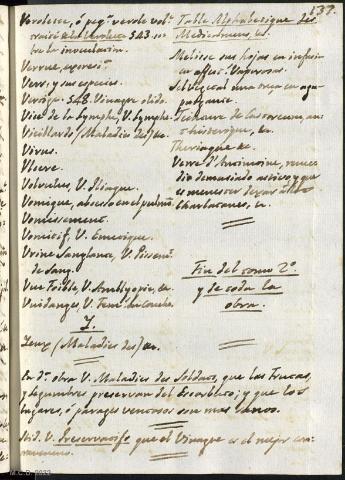 137.
Verolette, ó peqª verole vol-
543. so-
bre la inoculacion.
Verrue, excrecª
Vers; y sus especies.
Vertigo = 548. Vinagre olido.
Vice de la Lymphe, V. Lymphe.
Vieillards (Maladies des) &c.
Virus.
Ulcere.
Volvulus, V. Iliaque.
Vomique, absceso en el pulmón
Vomissement.
Vomitif, V. Emetique.
Urine Sanglante, V. Pissemt
de Sang.
Vue Foible, V. Amblyopie, &c.
Vuidanges, V. Femᵉ en Couche.
Y.
Yeux (Maladies des) &c.
Table Alphabetique des
Medicamens, &c.
Melisse sus hojas en infusion
en affect. Vaporosas.
Sel vegetal una onza en agua
purgante.
Teinture de Castoreum, an-
ti histerique, &c.
Theriaque &c.
Verre d'Antimoine, reme-
dio demasiado activo y que
es menester dexar á los
Charlatanes, &c.
Fin del tomo 2º
y de toda la
obra.
En dª obra V. Maladies des Soldats, que las Frutas,
y legumbres preservan del Escorbuto; y que los
lugares, ó parages ventosos son mas sanos.
Ibid. V. Preservatifs que el Vinagre es el mejor